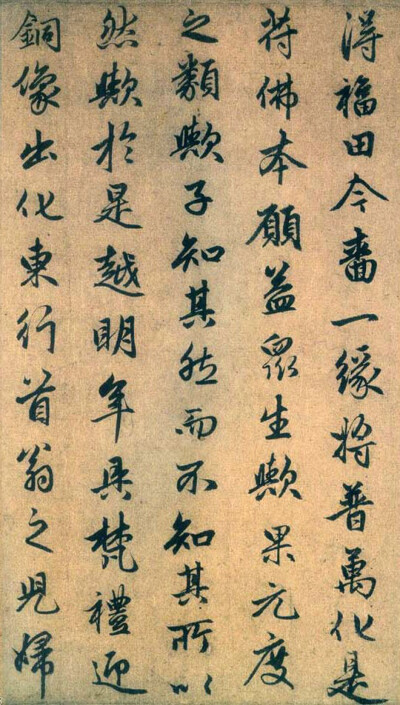 得福田今啬一缘将普萬化是
符佛本願益眾生歟果元度
之類歟子知其然而不知其所以
然歟於是越明年具梵禮迎
銅像出化東行首翁之兒婦